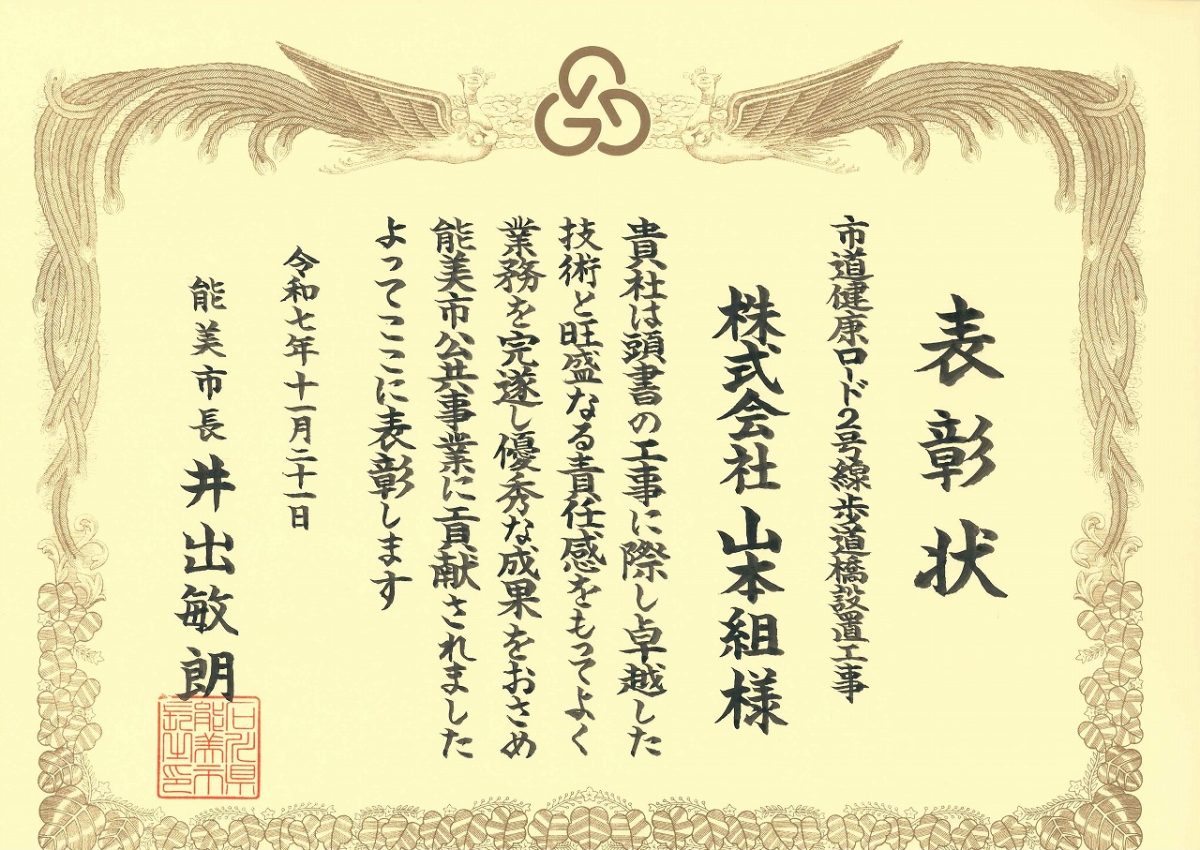 表彰状
市道健康ロード2号線歩道橋設置工事
株式会社 山本組 様
貴社は頭書の工事に際し卓越した
技術と旺盛なる責任感をもってよく
業務を完遂し優秀な成果をおさめ
能美市公共事業に貢献されました
よってここに表彰します
令和七年十一月二十一日
能美市長 井出敏朗
石川県
能美市
長之印